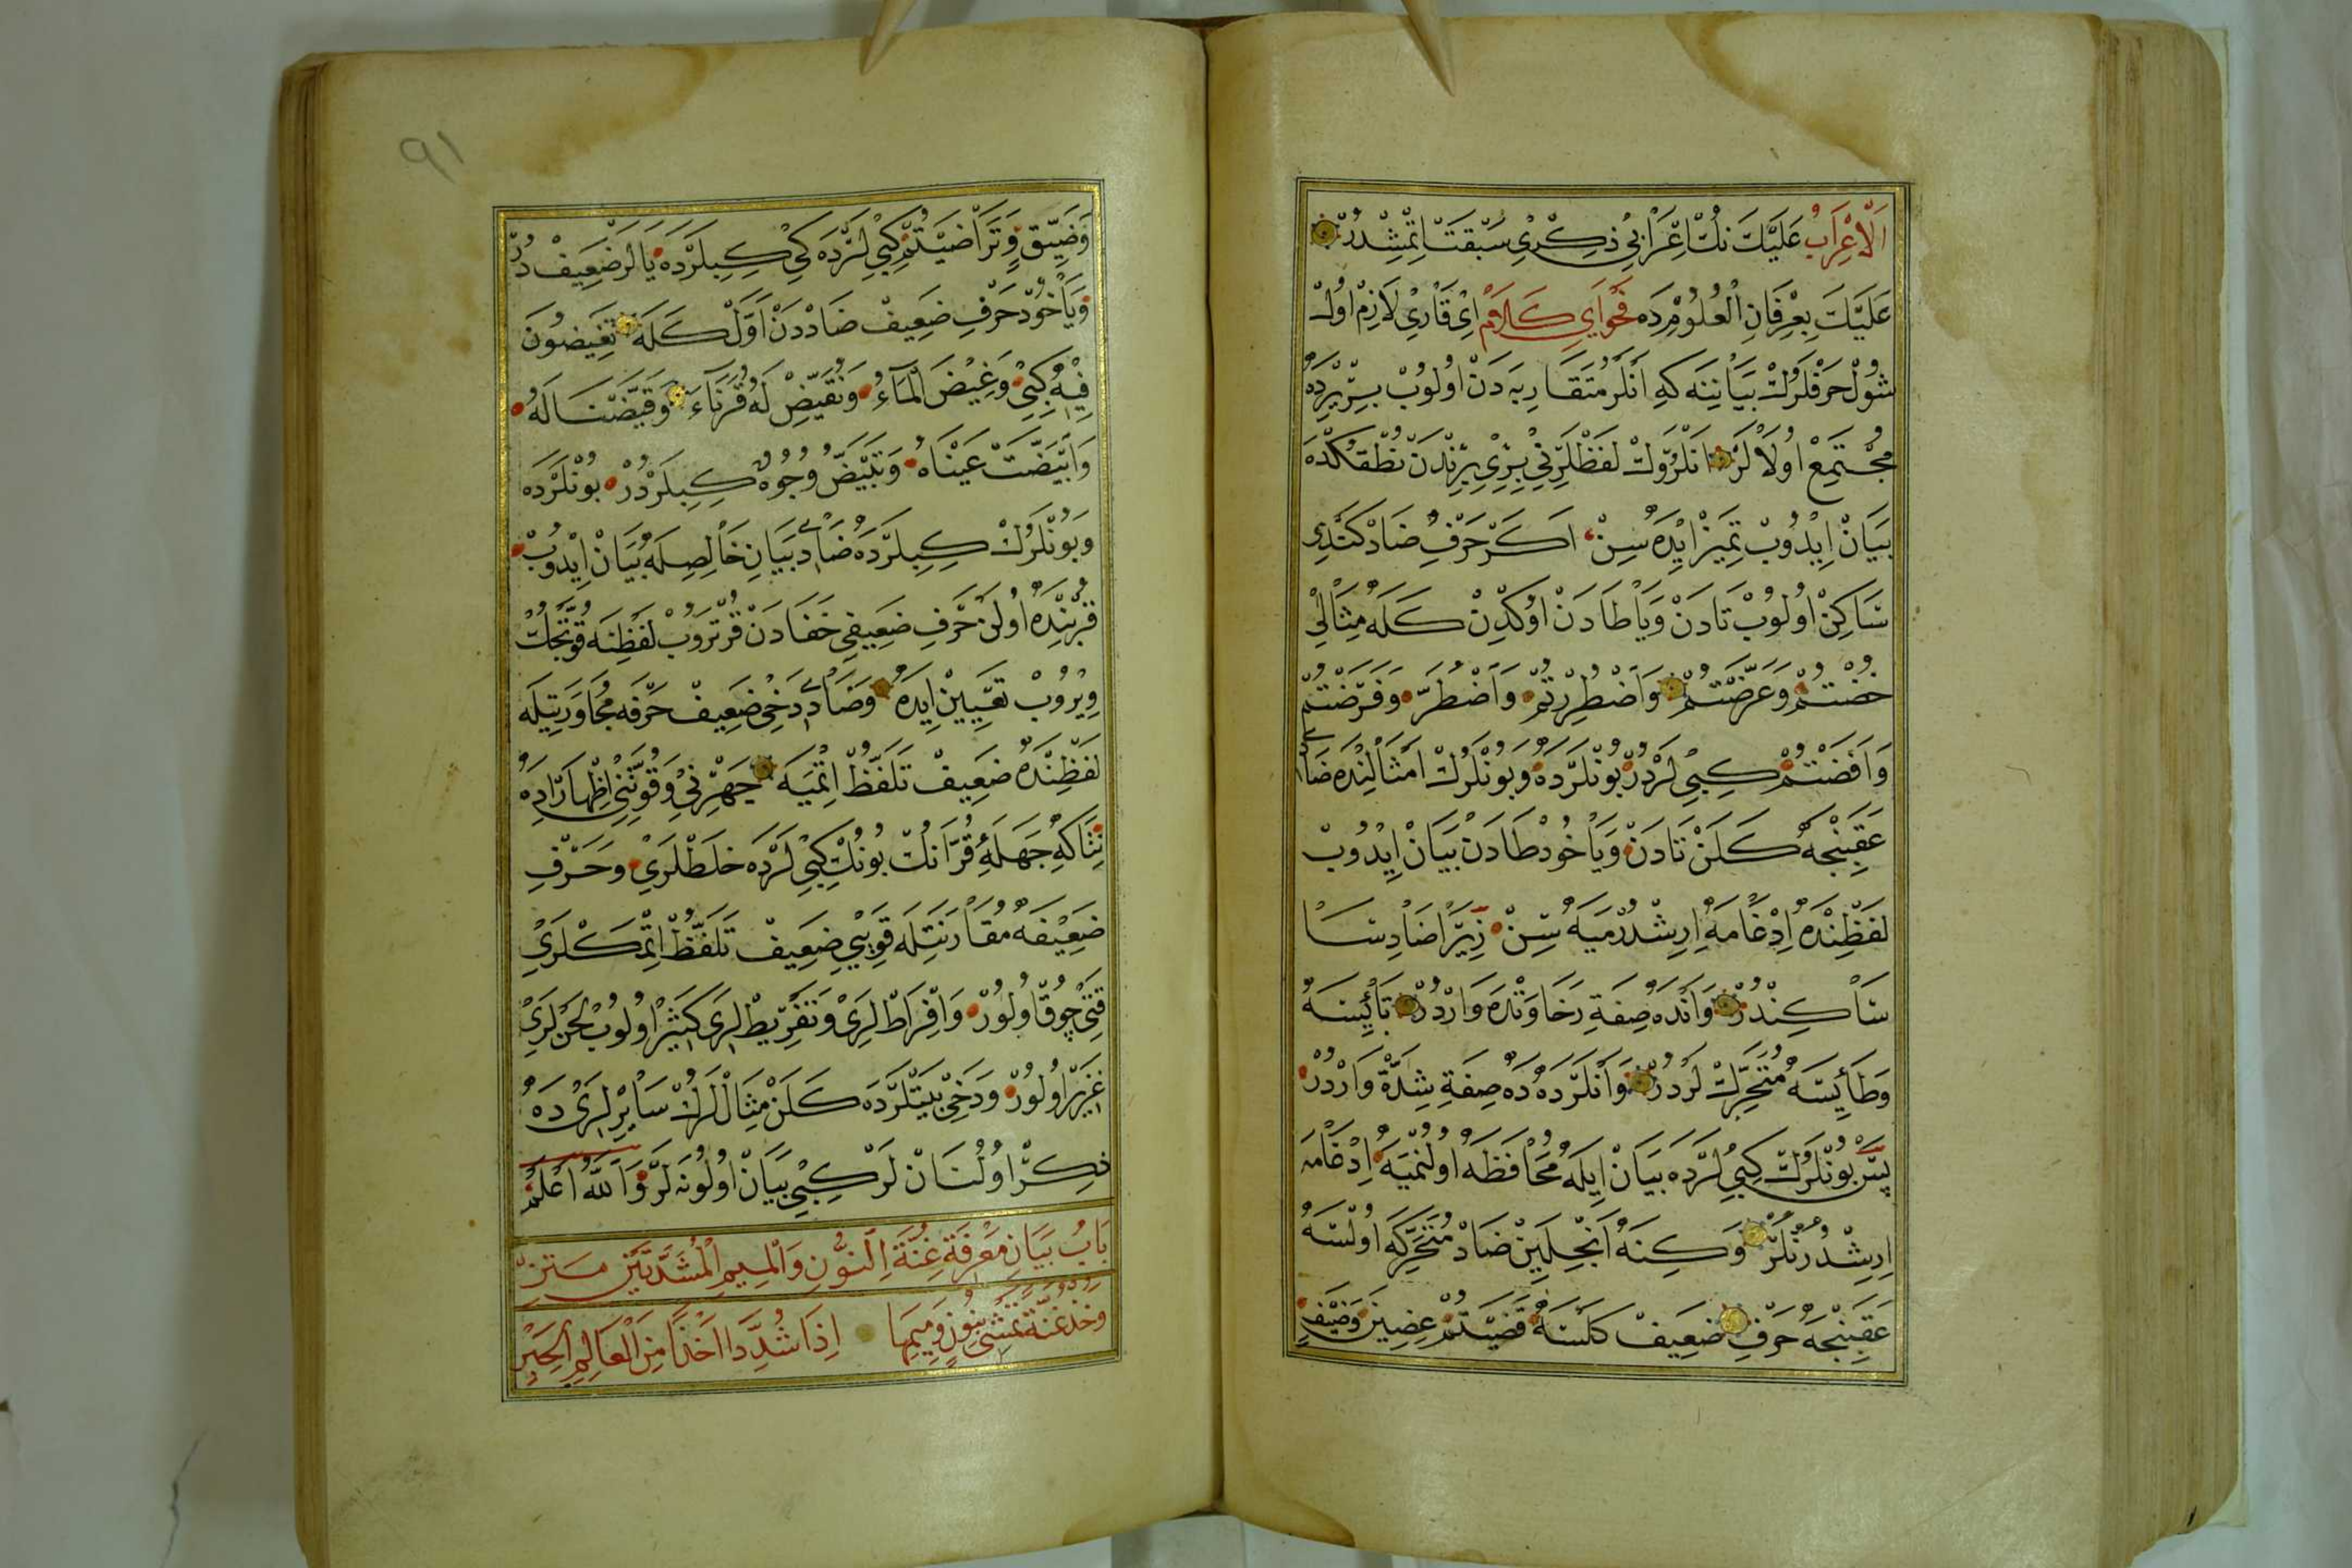 اَلْاِعْرَابُ عَلَيْكَ نُكْ اِعْرَابِي ذِكْرِي سَبْقَتْ اِتْمِشْدُرْ
عَلَيْكَ بِعِرْفَانِ الْعُلُومِ دَه فَحْوَايِ كَلَامْ اَيْ قَارِي لَازِمْ اُولْ
شُولْ حَرْفْلَرُكْ بَيَانِنَه كِه اَنْلَرْ مُتَقَارِبَه دَنْ اُولُوبْ بِرْ يِرْدَه
مُجْتَمِعْ اُولَالَرْ اَنْلَرُوكْ لَفْظْلَرِنِي بِرِي بِرِنْدَنْ نُطْقُكْدَه
بَيَانْ اِيْدُوبْ تَمِيزْ اِيْدَه سِنْ اَكَرْ حَرْفِ ضَادْ كَنْدِي
سَاكِنْ اُولُوبْ تَادَنْ وَيَا طَادَنْ اُوكْدِنْ كَلَه مِثَالِي
خُضْتُمْ وَعَرَّضْتُمْ وَاضْطُرِرْتُمْ وَاَضْطَرُّ وَفَرَضْتُمْ
وَاَفَضْتُمْ كِبِي لَرْدُرْ بُونْلَرْدَه وَبُونْلَرُكْ اَمْثَالِنْدَه ضَادْ
عَقِبِنْجَه كَلَنْ تَادَنْ وَيَاخُودْ طَادَنْ بَيَانْ اِيْدُوبْ
لَفْظِنْدَه اِدْغَامَه اِرِشْدُرْمَيَه سِنْ زِيرَا ضَادِسَا
سَاكِنْدُرْ وَاَنْدَه صِفَةِ رَخَاوَتْدَه وَارْدُرْ تَا يِسَه
وَطَا يِسَه مُتَحَرِّكْ لَرْدُرْ وَاَنْلَرْدَه دَه صِفَةِ شِدَّة وَارْدُرْ
پَسْ بُونْلَرُكْ كِبِي لَرْدَه بَيَانْ اِيلَه مُحَافَظَه اُولُنْمَيَه اِدْغَامَه
اِرِشْدُرُنْلَرْ وَكِنَه اَنْجِلَيِنْ ضَادْ مُتَحَرِّكَه اُولْسَه
عَقِبِنْجَه حَرْفِ ضَعِيفْ كَلْسَه قَضَيْتُمْ عِضِينَ وَضَيْفِ
٩١
وَضَيِّقٍ وَتَرَاضَيْتُمْ كِبِي لَرْدَه كِي كِبِيلَرْدَه يَالَرْ ضَعِيفْ دُرْ
وَيَاخُودْ حَرْفِ ضَعِيفْ ضَادْدَنْ اَوَّلْ كَلَه تُفِيضُونَ
فِيهِ كِبِي وَغِيضَ الْمَاءُ وَنُقَيِّضْ لَهُ قُرَنَاءَ وَقَيَّضْنَا لَهُ
وَابْيَضَّتْ عَيْنَاهُ وَتَبْيَضُّ وُجُوهٌ كِبِيلَرْدُرْ بُونْلَرْدَه
وَبُونْلَرُكْ كِبِيلَرْدَه ضَادِي بَيَانِ خَالِصِيلَه بَيَانْ اِيْدُوبْ
قُرْبِنْدَه اُولَنْ حَرْفِ ضَعِيفِي خَفَادَنْ قُرْتَرُوبْ لَفْظِنَه قُوَّتْجِكْ
وِيرُوبْ تَعْيِينْ اِيدَه وَضَادِي دَخِي ضَعِيفْ حَرْفَه مُجَاوَرَتِيلَه
لَفْظِنْدَه ضَعِيفْ تَلَفُّظْ اِتْمَيَه جَهْرِنِي وَقُوَّتِنِي اِظْهَارْ اِدَه
نِتَاكِه جَهَلَهءِ قُرَّانُكْ بُونُكْ كِبِي لَرْدَه خَلَطْلَرِي وَحَرْفِ
ضَعِيفَه مُقَارَنَتِيلَه قَوِيِّي ضَعِيفْ تَلَفُّظْ اِتْمَكْلَرِي
قَتِي چُوقْ اُولُورْ وَاِفْرَاطْ لَرِي وَتَفْرِيطْ لَرِي كَثِيرْ اُولُوبْ لَحْنْ لَرِي
غَزِيرْ اُولُورْ وَدَخِي بَيْتْلَرْدَه كَلَنْ مِثَالْ لَرُكْ سَايِرْلَرِي دَه
ذِكْرْ اُولُنَانْ لَرْ كِبِي بَيَانْ اُولُونَه لَرْ وَاللّٰهُ اَعْلَمُ
بَابُ بَيَانِ مَعْرِفَةِ غُنَّةِ النُّونِ وَالْمِيمِ الْمُشَدَّدَتَيْنِ مَتَنْ
وَخُذْ غُنَّةً تَمْشِي بِنُونٍ وَمِيمِهَا اِذَا شُدِّدَا اَخْذًا مِنَ الْعَالِمِ الْحَبْرِ